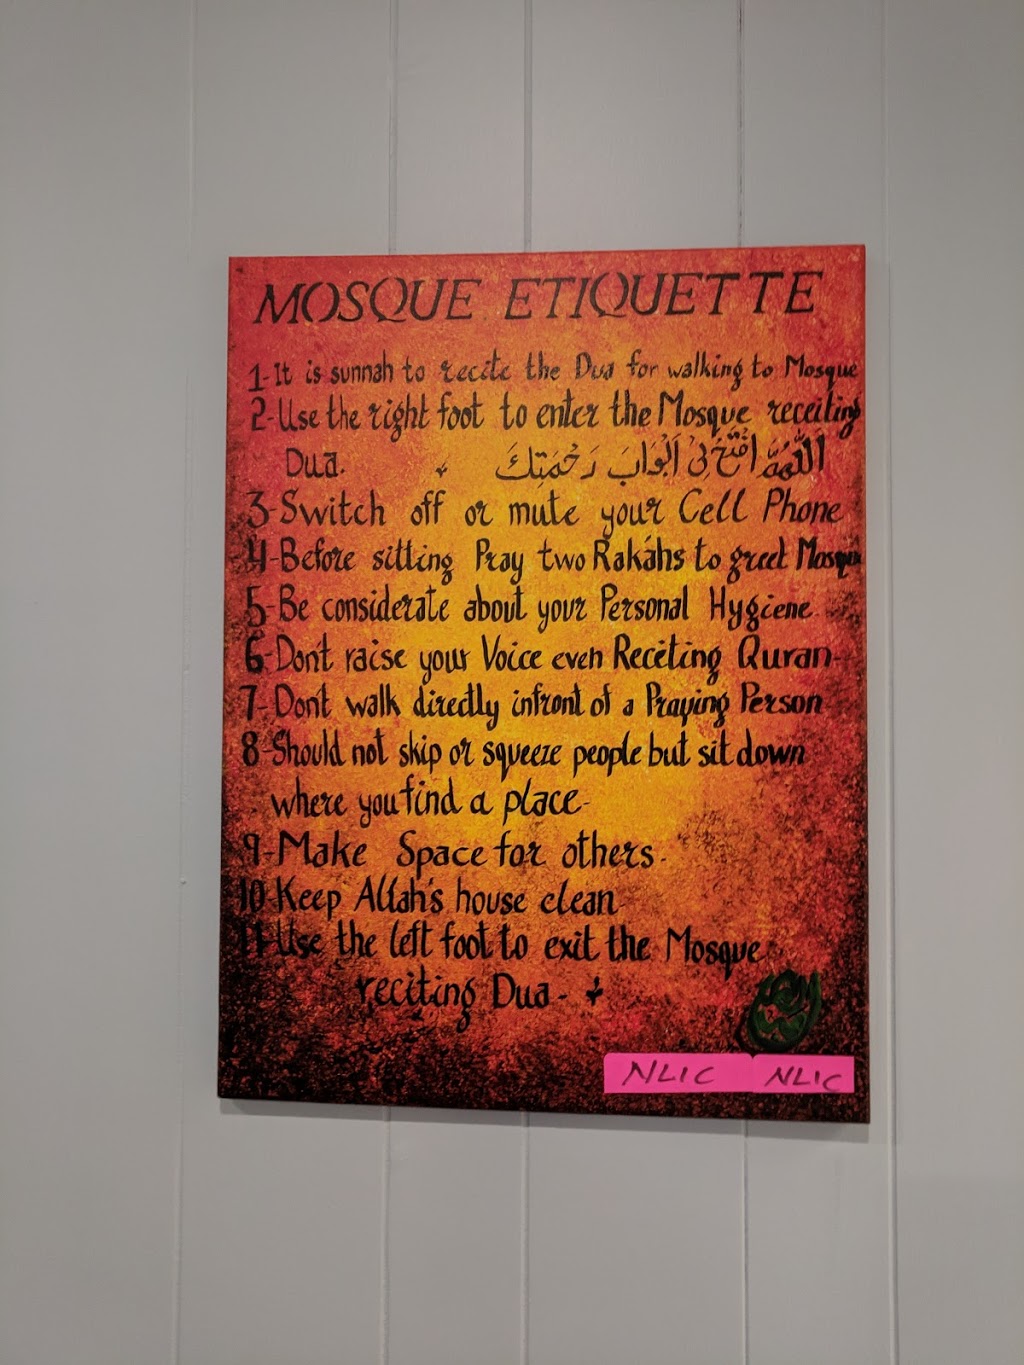 MOSQUE ETIQUETTE
1- It is sunnah to recite the Dua for walking to Mosque
2- Use the right foot to enter the Mosque receiting
Dua. اَللّٰهُمَّ افْتَحْ لِيْ اَبْوَابَ رَحْمَتِكَ
3- Switch off or mute your Cell Phone
4- Before sitting Pray two Rakáhs to greet Mosque
5- Be considerate about your Personal Hygiene.
6- Don't raise your Voice even Receiting Quran-
7- Don't walk directly infront of a Praying Person
8- Should not skip or squeeze people but sit down
where you find a place-
9- Make Space for others.
10- Keep Allah's house clean
11- Use the left foot to exit the Mosque
reciting Dua-
NLIC NLIC